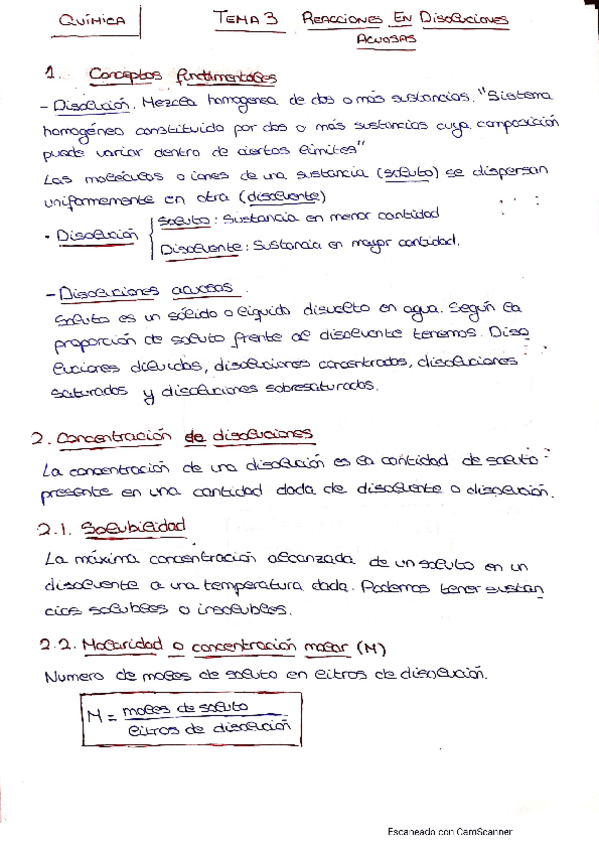 QUÍMICA
TEMA 3 REACCIONES EN DISOLUCIONES
ACUOSAS
1. Conceptos fundamentales
- Disolución. Mezcla homogenea de dos o más sustancias. "Sistema
homogéneo constituido por dos o más sustancias cuya composición
puede variar dentro de ciertos límites"
Las moléculas o iones de una sustancia (soluto) se dispersan
uniformemente en otra (disolvente)
• Disolución { Soluto: Sustancia en menor cantidad
Disolvente: Sustancia en mayor cantidad.
- Disoluciones acuosas.
Soluto es un sólido o líquido disuelto en agua. Según la
proporción de soluto frente al disolvente tenemos. Diso
luciones diluidas, disoluciones concentradas, disoluciones
saturadas y disoluciones sobresaturadas.
2. Concentración de disoluciones
La concentración de una disolución es la cantidad de soluto
presente en una cantidad dada de disolvente o disolución.
2.1. Solubilidad
La máxima concentración alcanzada de un soluto en un
disolvente a una temperatura dada. Podemos tener sustan
cias solubles o insolubles.
2.2. Molaridad o concentración molar (M)
Numero de moles de soluto en litros de disolución.
M = moles de soluto
litros de disolución
Escaneado con CamScanner